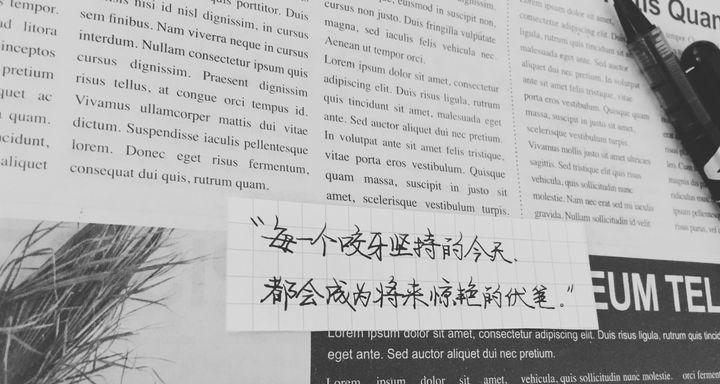 tempor.
ad litora
inceptos
pretium
quet ac
quam.
cidunt,
aliquet
nisi id nisl dignissim, in cursus
sem finibus. Nam viverra neque in cursus
interdum. Nullam consectetur ipsum quis
cursus dignissim. Praesent dignissim
risus tellus, at congue orci tempus id.
Vivamus ullamcorper mattis dui vitae
dictum. Suspendisse iaculis pellentesque
lorem. Donec eget risus fermentum,
consequat dui quis, rutrum quam.
cursus non justo. Duis fringilla vulputate
magna, sed iaculis felis vehicula nec.
Aenean ut tempor orci.
Lorem ipsum dolor sit amet, consectetur
adipiscing elit. Duis risus ligula, rutrum
quis tincidunt sit amet, malesuada eget
ante. Sed auctor aliquet dui nec pretium.
In volutpat ante sit amet felis tristique,
vitae porta eros vestibulum. Quisque
quam massa, suscipit in justo sit
amet, scelerisque vestibulum turpis.
Lorem ipsum dolor sit amet,
consectetur adipiscing elit. Duis
ligula, rutrum quis tincidunt sit
malesuada eget ante. Sed auctor
aliquet dui nec pretium. In volutpat
ante sit amet felis tristique, vitae
porta eros vestibulum. Quisque quam
massa, suscipit in justo sit amet,
scelerisque vestibulum turpis.
Vivamus mollis justo sit amet ultricies
sagittis. Sed tristique elit quis risus
vehicula, quis sollicitudin nunc
molestie. Nam nec erat sed mi iaculis
gravida. Nullam sollicitudin id velit
Quam
“每一个咬牙坚持的今天、
都会成为将来惊艳的伏笔。”
EUM TEL
Lorem ipsum dolor sit amet, consectetur adipiscing elit. Duis risus ligula, rutrum quis
eget ante. Sed auctor aliquet dui nec pretium.
Lorem ipsum dolor sit amet, vehicula, quis sollicitudin nunc molestie. orci